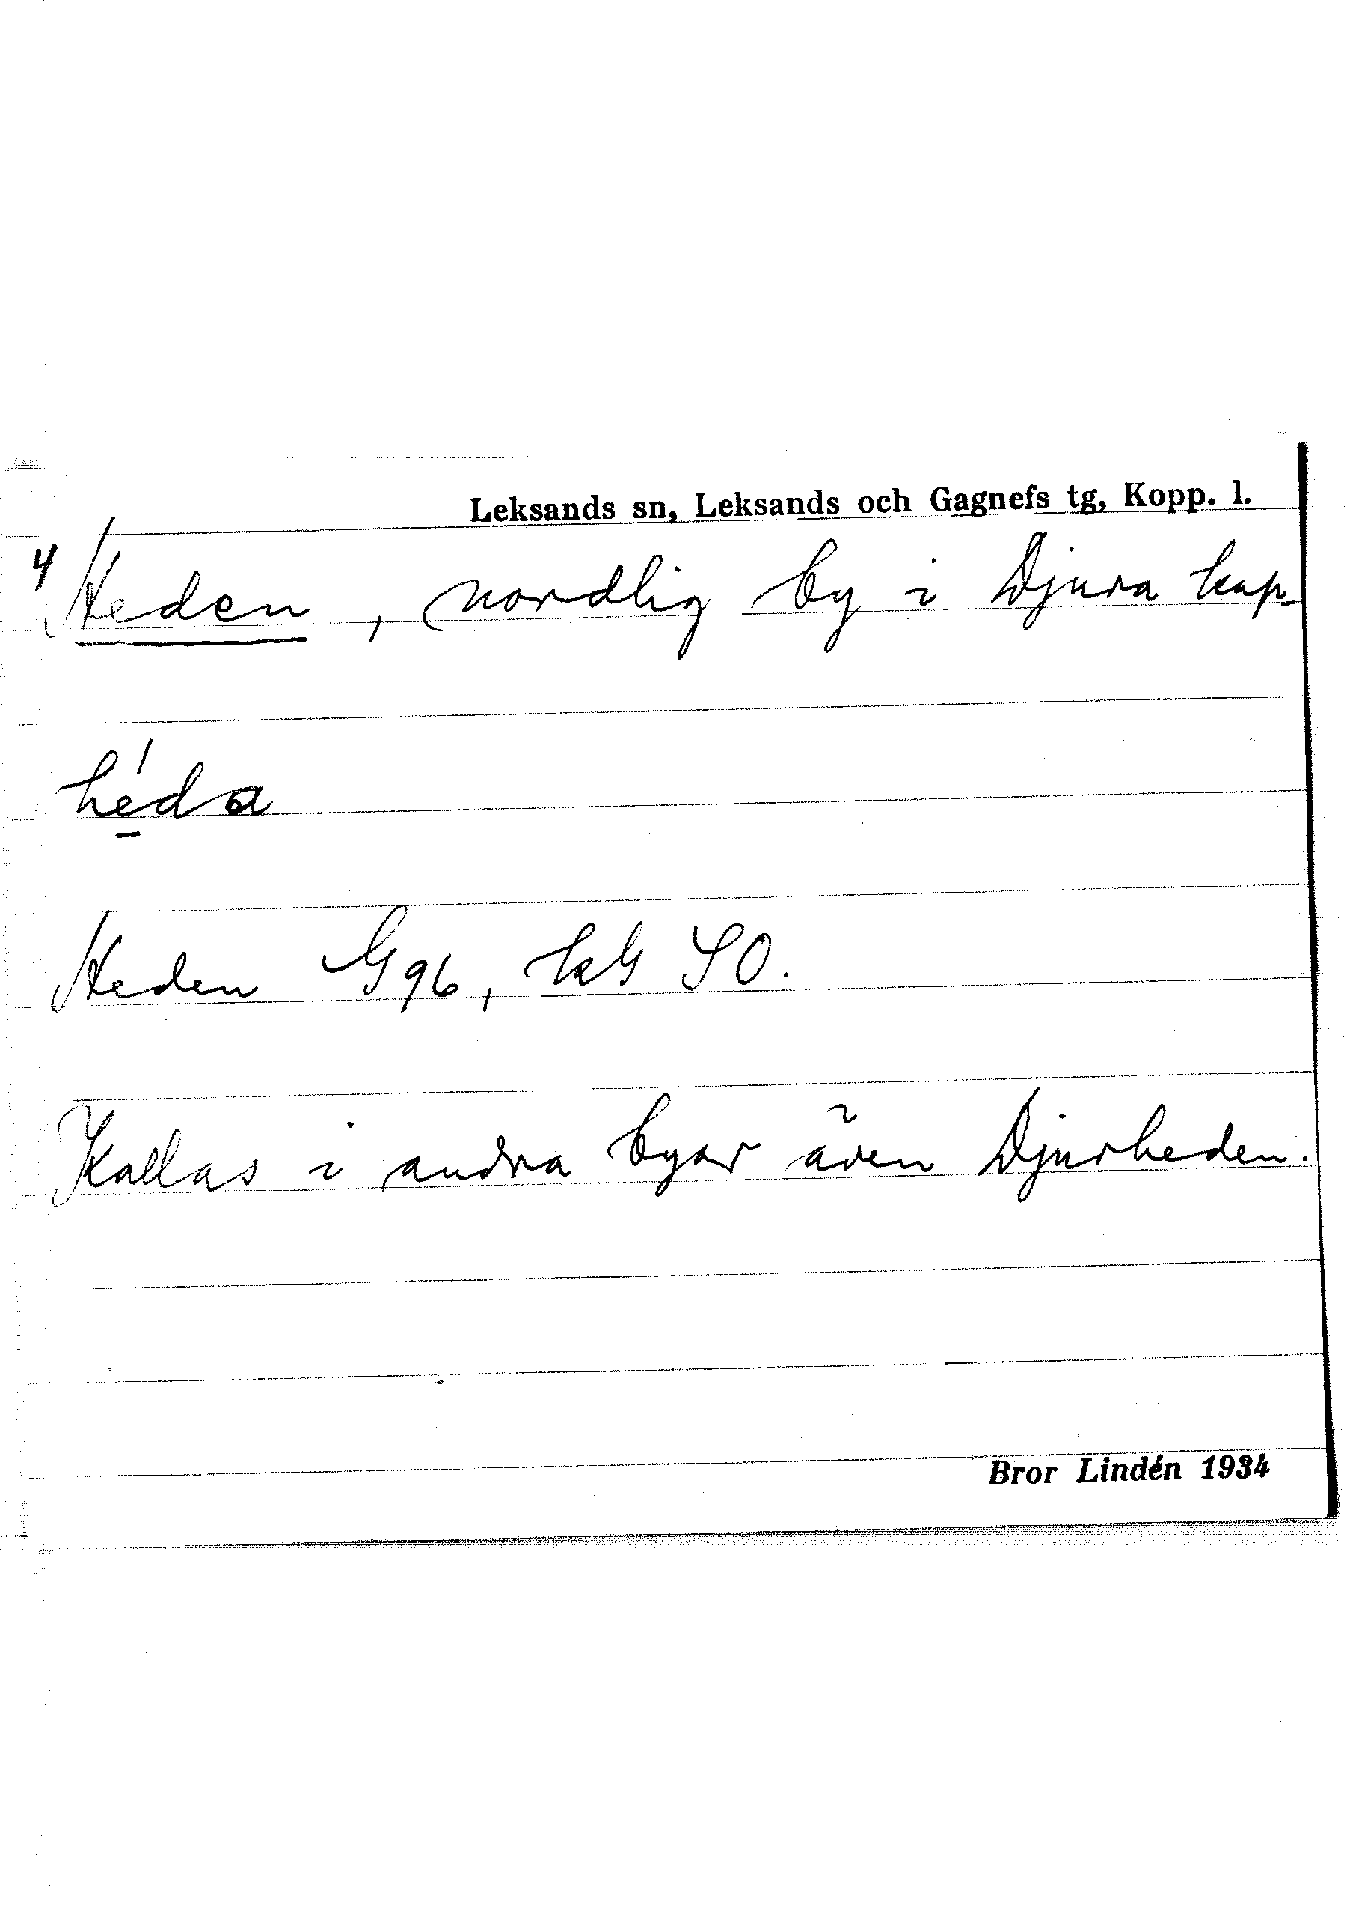 Leksands sn, Leksands och Gagnefs tg, Kopp. l.
4 Heden, nordlig by i Djura kap.
héda
Heden G96, kG SO.
Kallas i andra byar även Djurheden.
Bror Lindén 1934